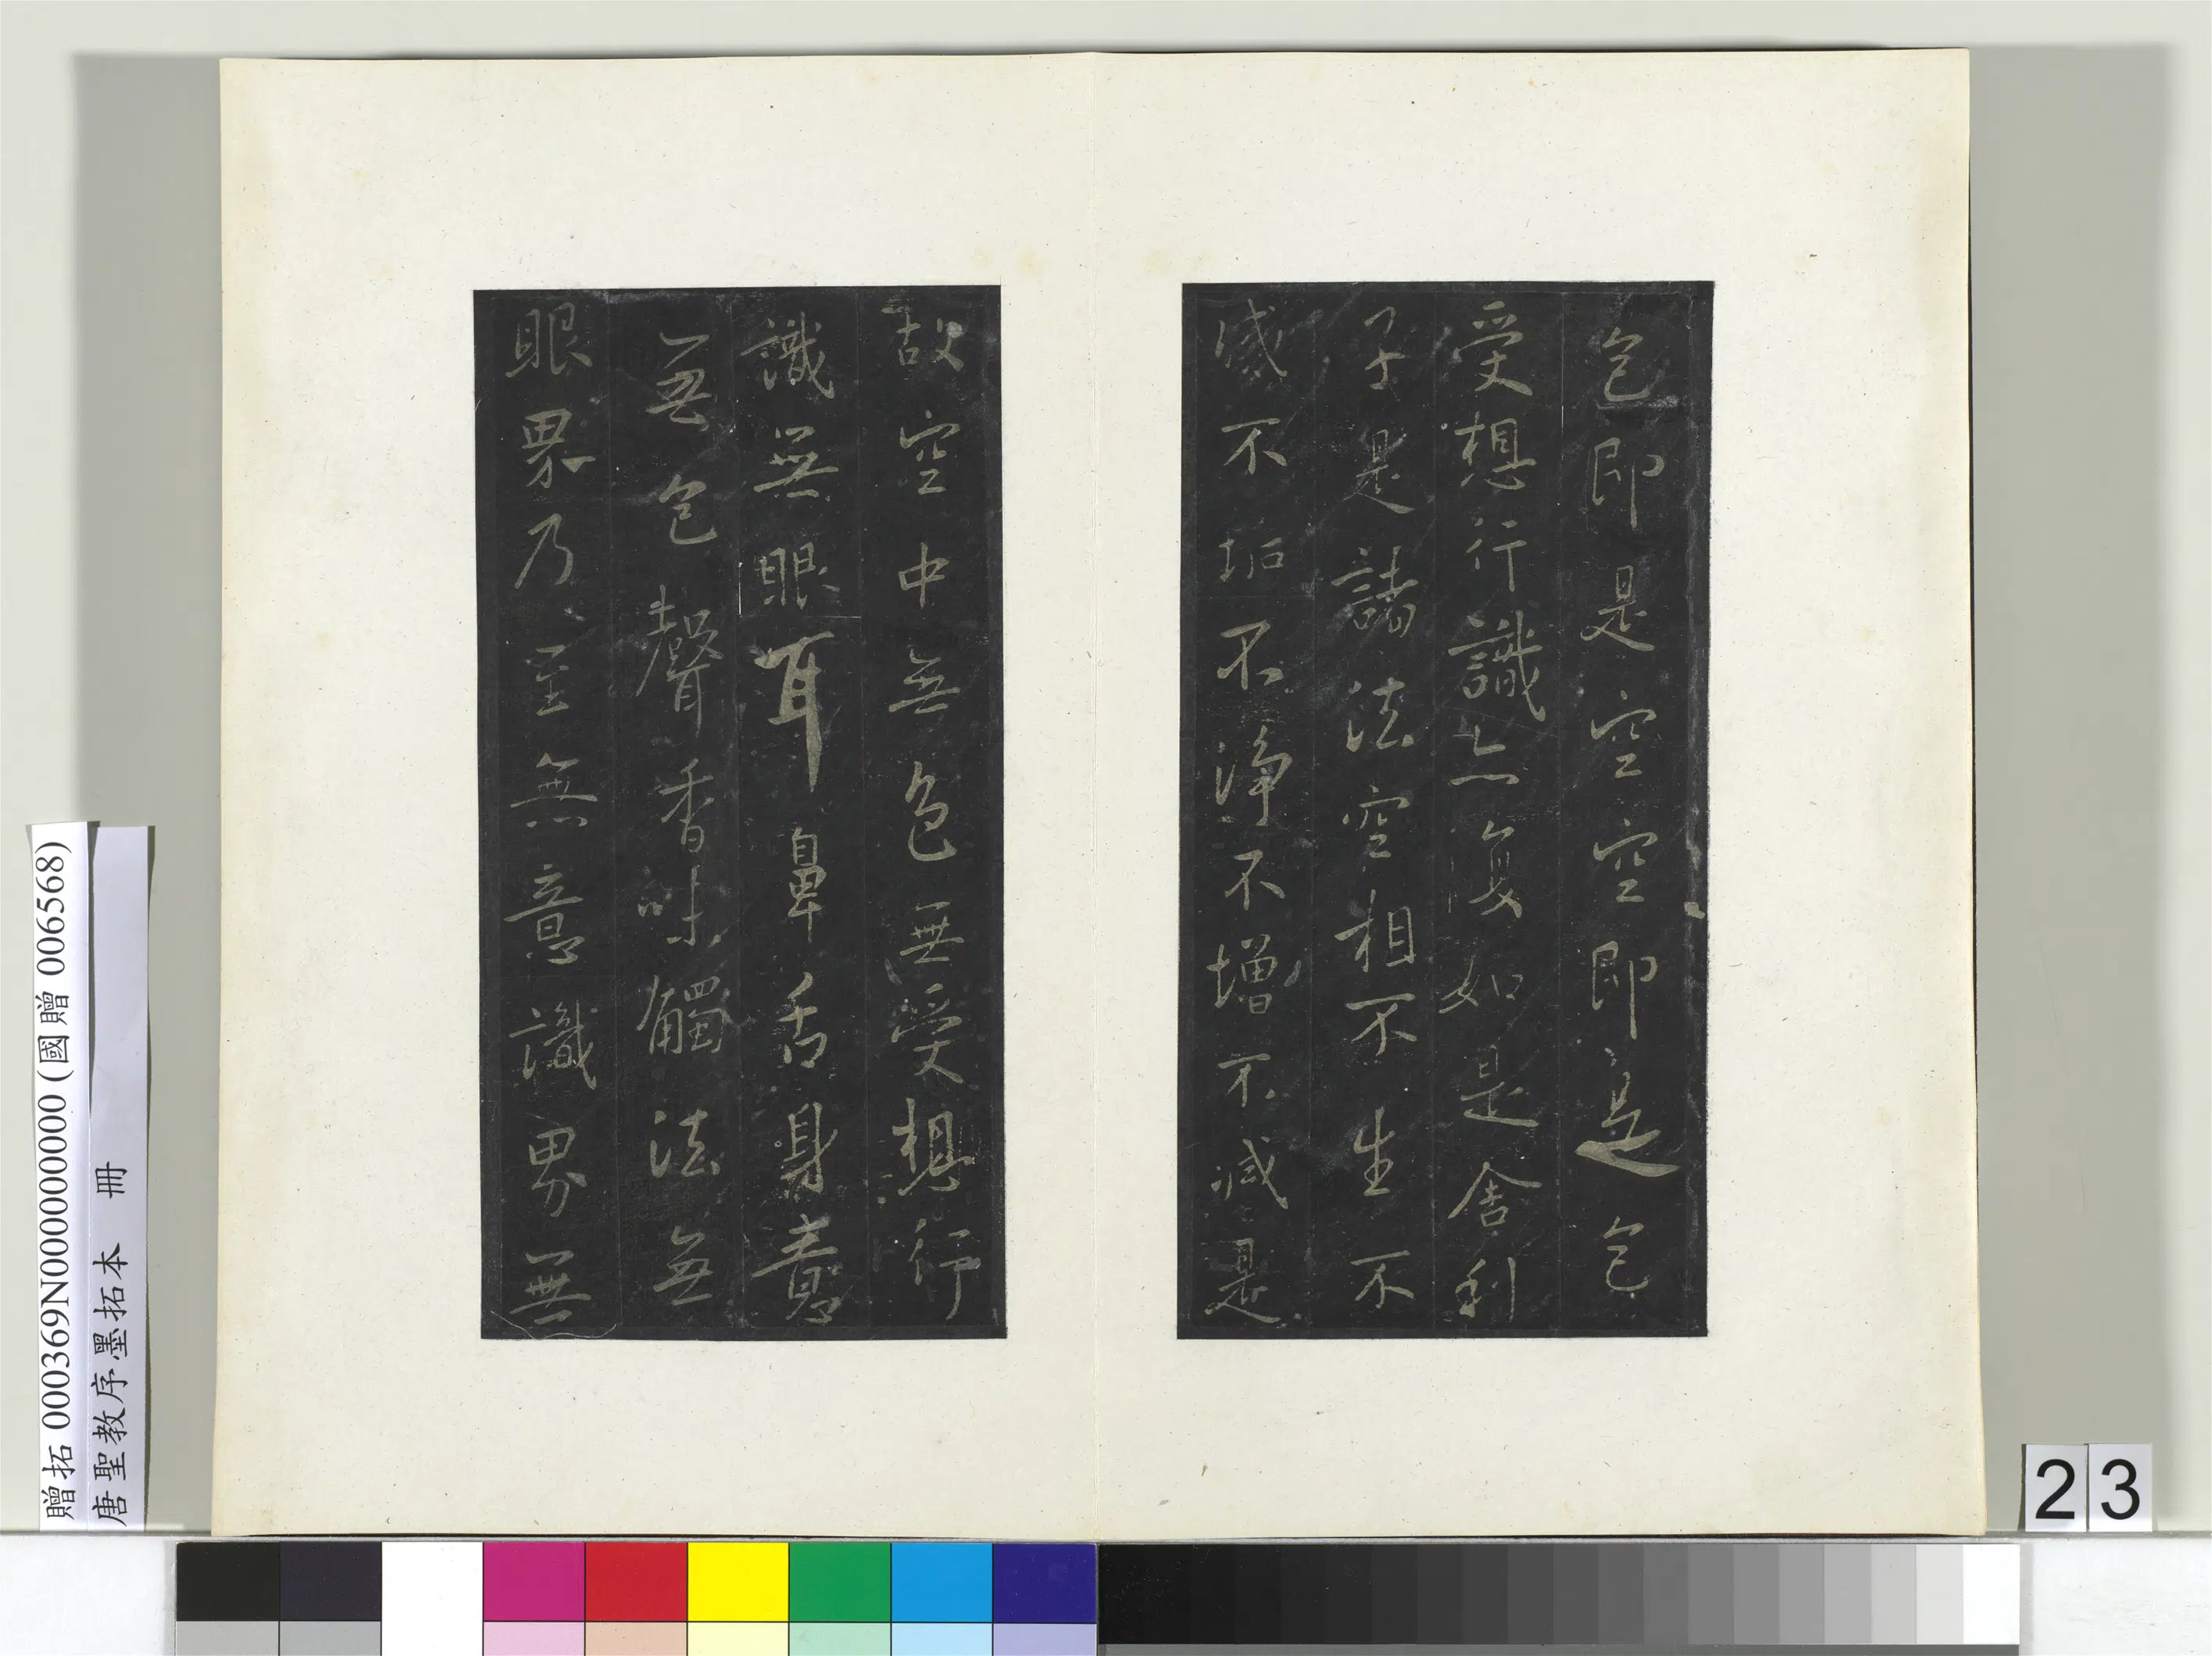 色即是空空即是色
受想行識亦復如是舍利
子是諸法空相不生不
滅不垢不淨不增不減是
故空中無色無受想行
識無眼耳鼻舌身意
無色聲香味觸法無
眼界乃至無意識界無
贈拓 000369N000000000 (國贈 006568)
唐聖教序墨拓本 冊
23